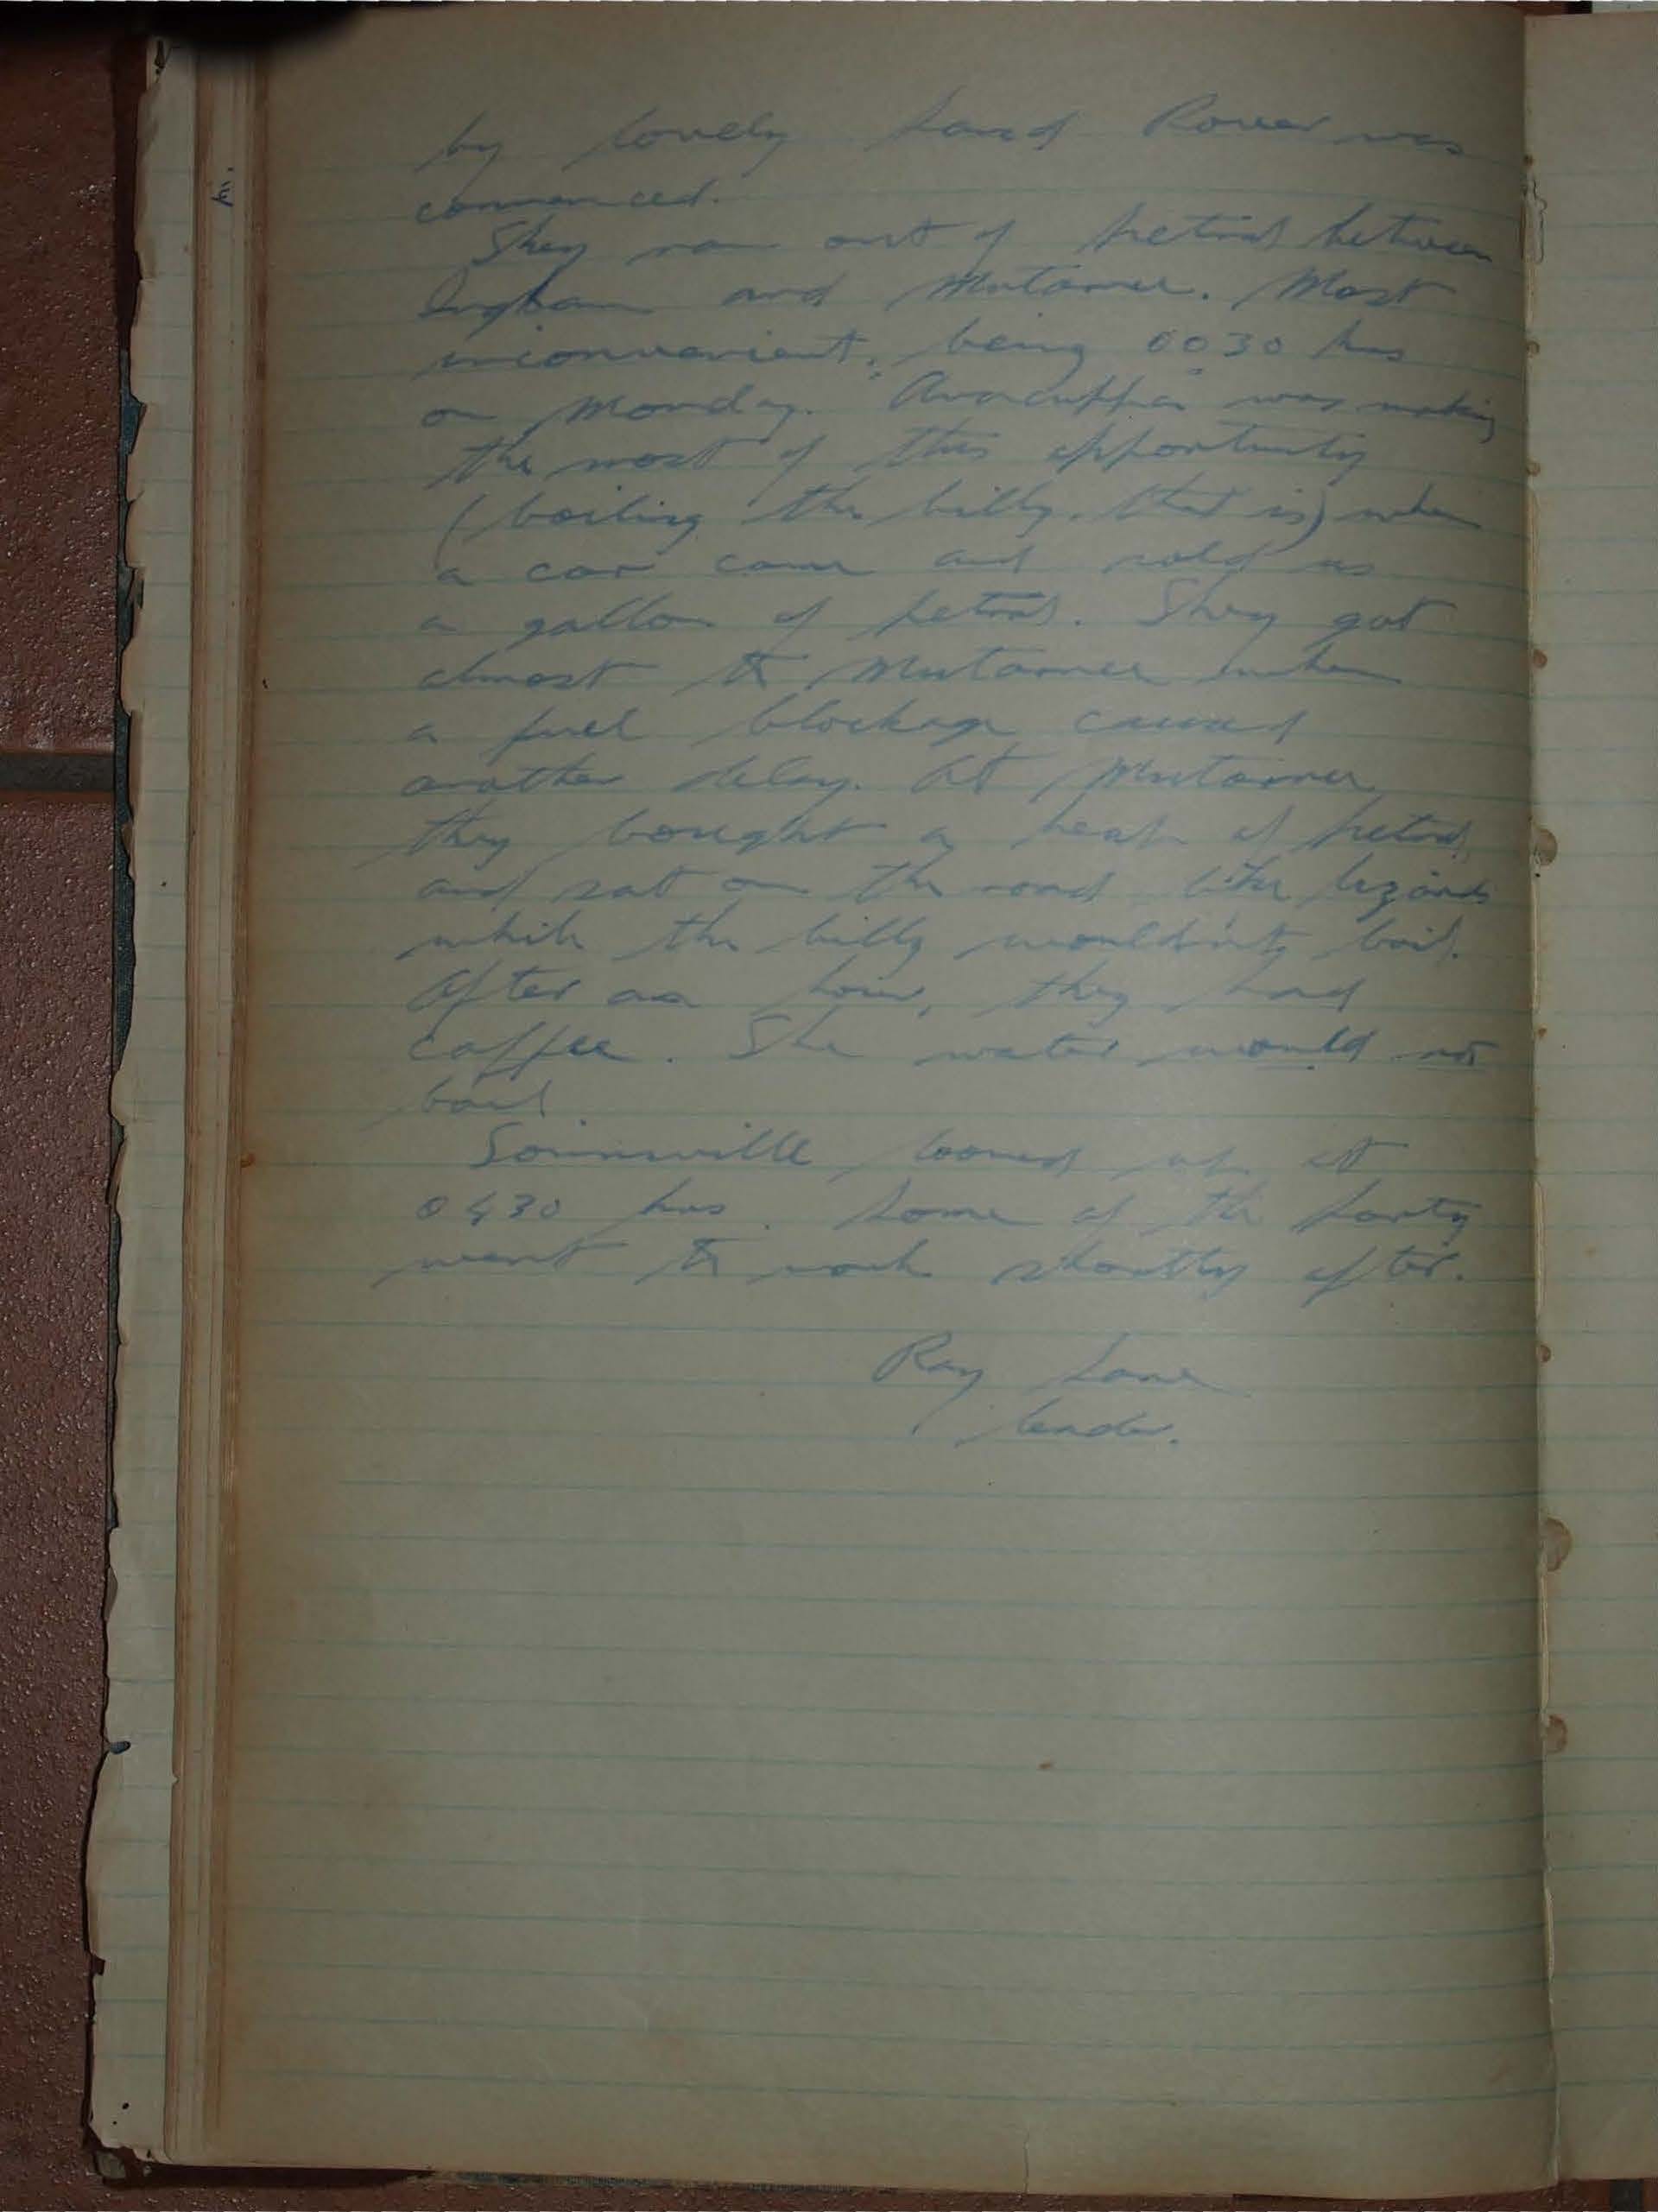 by lovely Land Rover was
commenced.
They ran out of petrol between
Ingham and Mutarnee. Most
inconvenient, being 0030 hrs
on Monday. Avacuppa was making
the most of this opportunity
(boiling the billy, that is) when
a car came and sold us
a gallon of petrol. They got
almost to Mutarnee when
a fuel blockage caused
another delay. At Mutarnee
they bought a heap of petrol
and sat on the road like lizards
while the billy wouldn't boil.
After an hour, they had
coffee. The water would not
boil.
Townsville loomed up at
0430 hrs. Some of the party
went to work shortly after.
Ray Lane
leader.